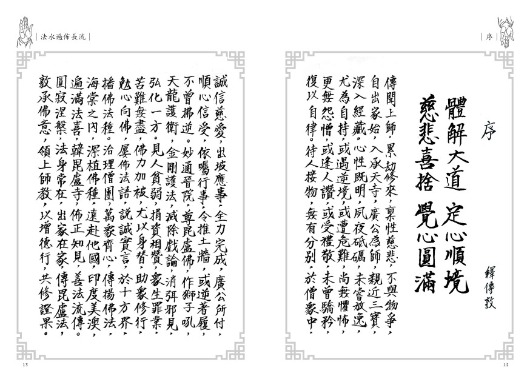 序
序
體解大道 定心順境
慈悲喜捨 覺心圓滿
釋傳敦
傳聞上師，累劫修來，稟性慈悲，不與物爭，
自出家始，入承天寺，廣公為師，親近三寶，
深入經藏。心性既明，夙夜砥礪，未嘗放逸，
尤為自持，或遇逆境，或遭危難，尚無懼怖，
更無怨憎，或逢人讚，或受權敬，未曾驕矜，
復以自律。待人接物，無有分別。於僧眾中，
法水過佛長流
誠信慈愛，出坡應事，全力完成，廣公所付，
順心信受，依囑行事，令推土牆，或逆者履，
不曾拂逆。妙通晉院，尊毘盧佛，作獅子吼，
天龍護衛，金剛護法，滅除戲論，消弭邪見，
弘化一方。見人貧弱，捐資相贊，眾生罪業，
苦難無盡，佛力加被，尤以身替，助眾修行，
勉心向佛，屢佛法語，說誠實言，於十方界，
播佛法種。治理僧團，萬眾齊心，傳揚佛法，
海棠之內，深植佛種，遠赴他國，印度美澳，
遍滿法喜，韓毘盧寺，佛正知見，善法流傳。
圓寂涅槃，法身常在，出家在家，傳毘盧法，
教承佛意，領上師教，以增德行，共修證果。
15
14